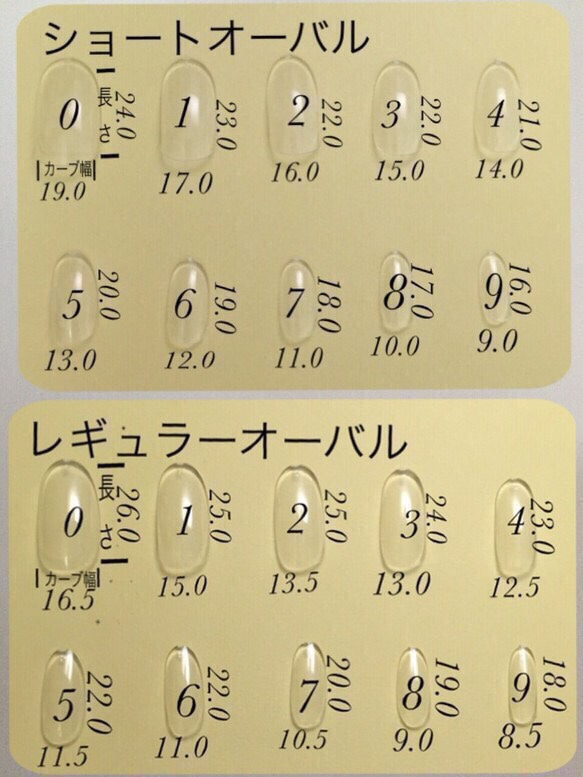 ショートオーバル
0 長さ 24.0 1 23.0 2 22.0 3 22.0 4 21.0
カーブ幅
19.0 17.0 16.0 15.0 14.0
5 20.0 6 19.0 7 18.0 8 17.0 9 16.0
13.0 12.0 11.0 10.0 9.0
レギュラーオーバル
0 長さ 26.0 1 25.0 2 25.0 3 24.0 4 23.0
カーブ幅
16.5 15.0 13.5 13.0 12.5
5 22.0 6 22.0 7 20.0 8 19.0 9 18.0
11.5 11.0 10.5 9.0 8.5